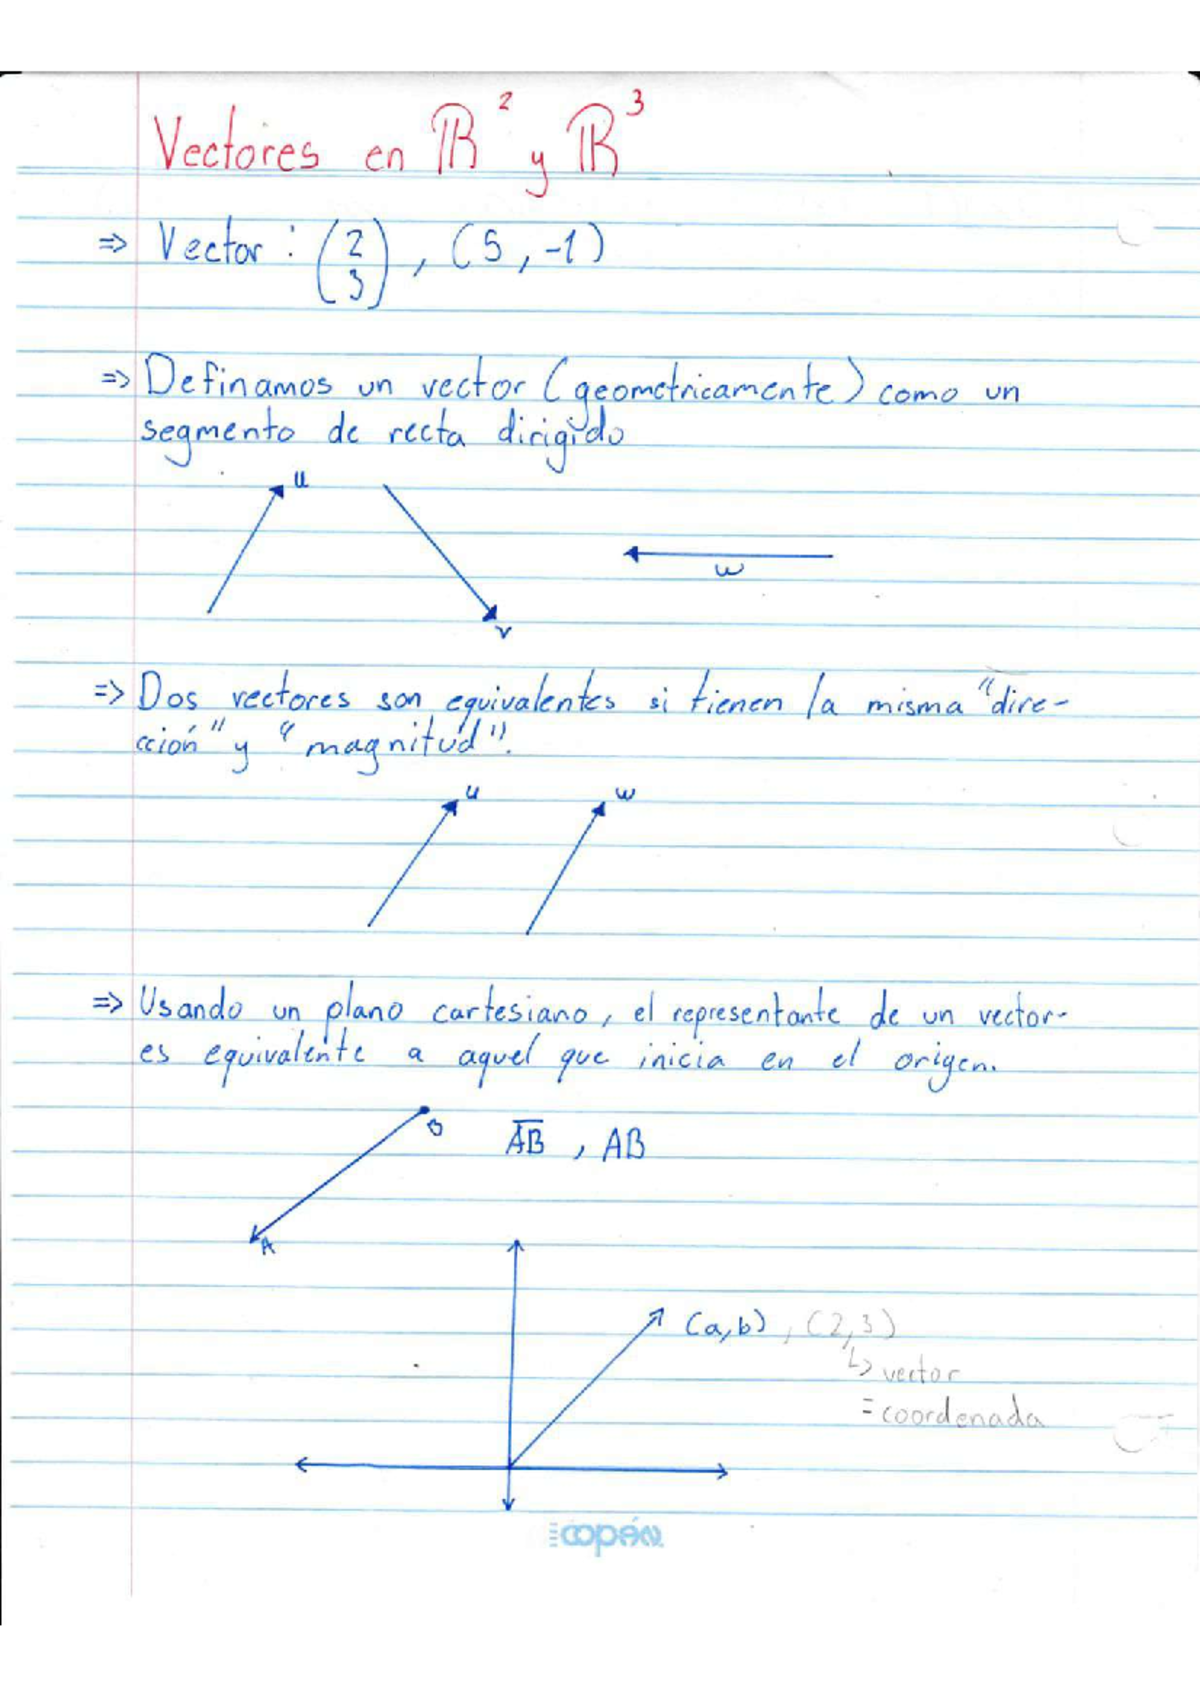 Vectores en ℝ² y ℝ³
⇒ Vector: (2 3), (5, -1)
⇒ Definamos un vector (geometricamente) como un
segmento de recta dirigido
u
w
v
⇒ Dos vectores son equivalentes si tienen la misma "dire-
cción" y "magnitud".
u w
⇒ Usando un plano cartesiano, el representante de un vector-
es equivalente a aquel que inicia en el origen.
B A̅B̅, AB
A
(a,b), (2,3)
↳ vector
= coordenada
copán